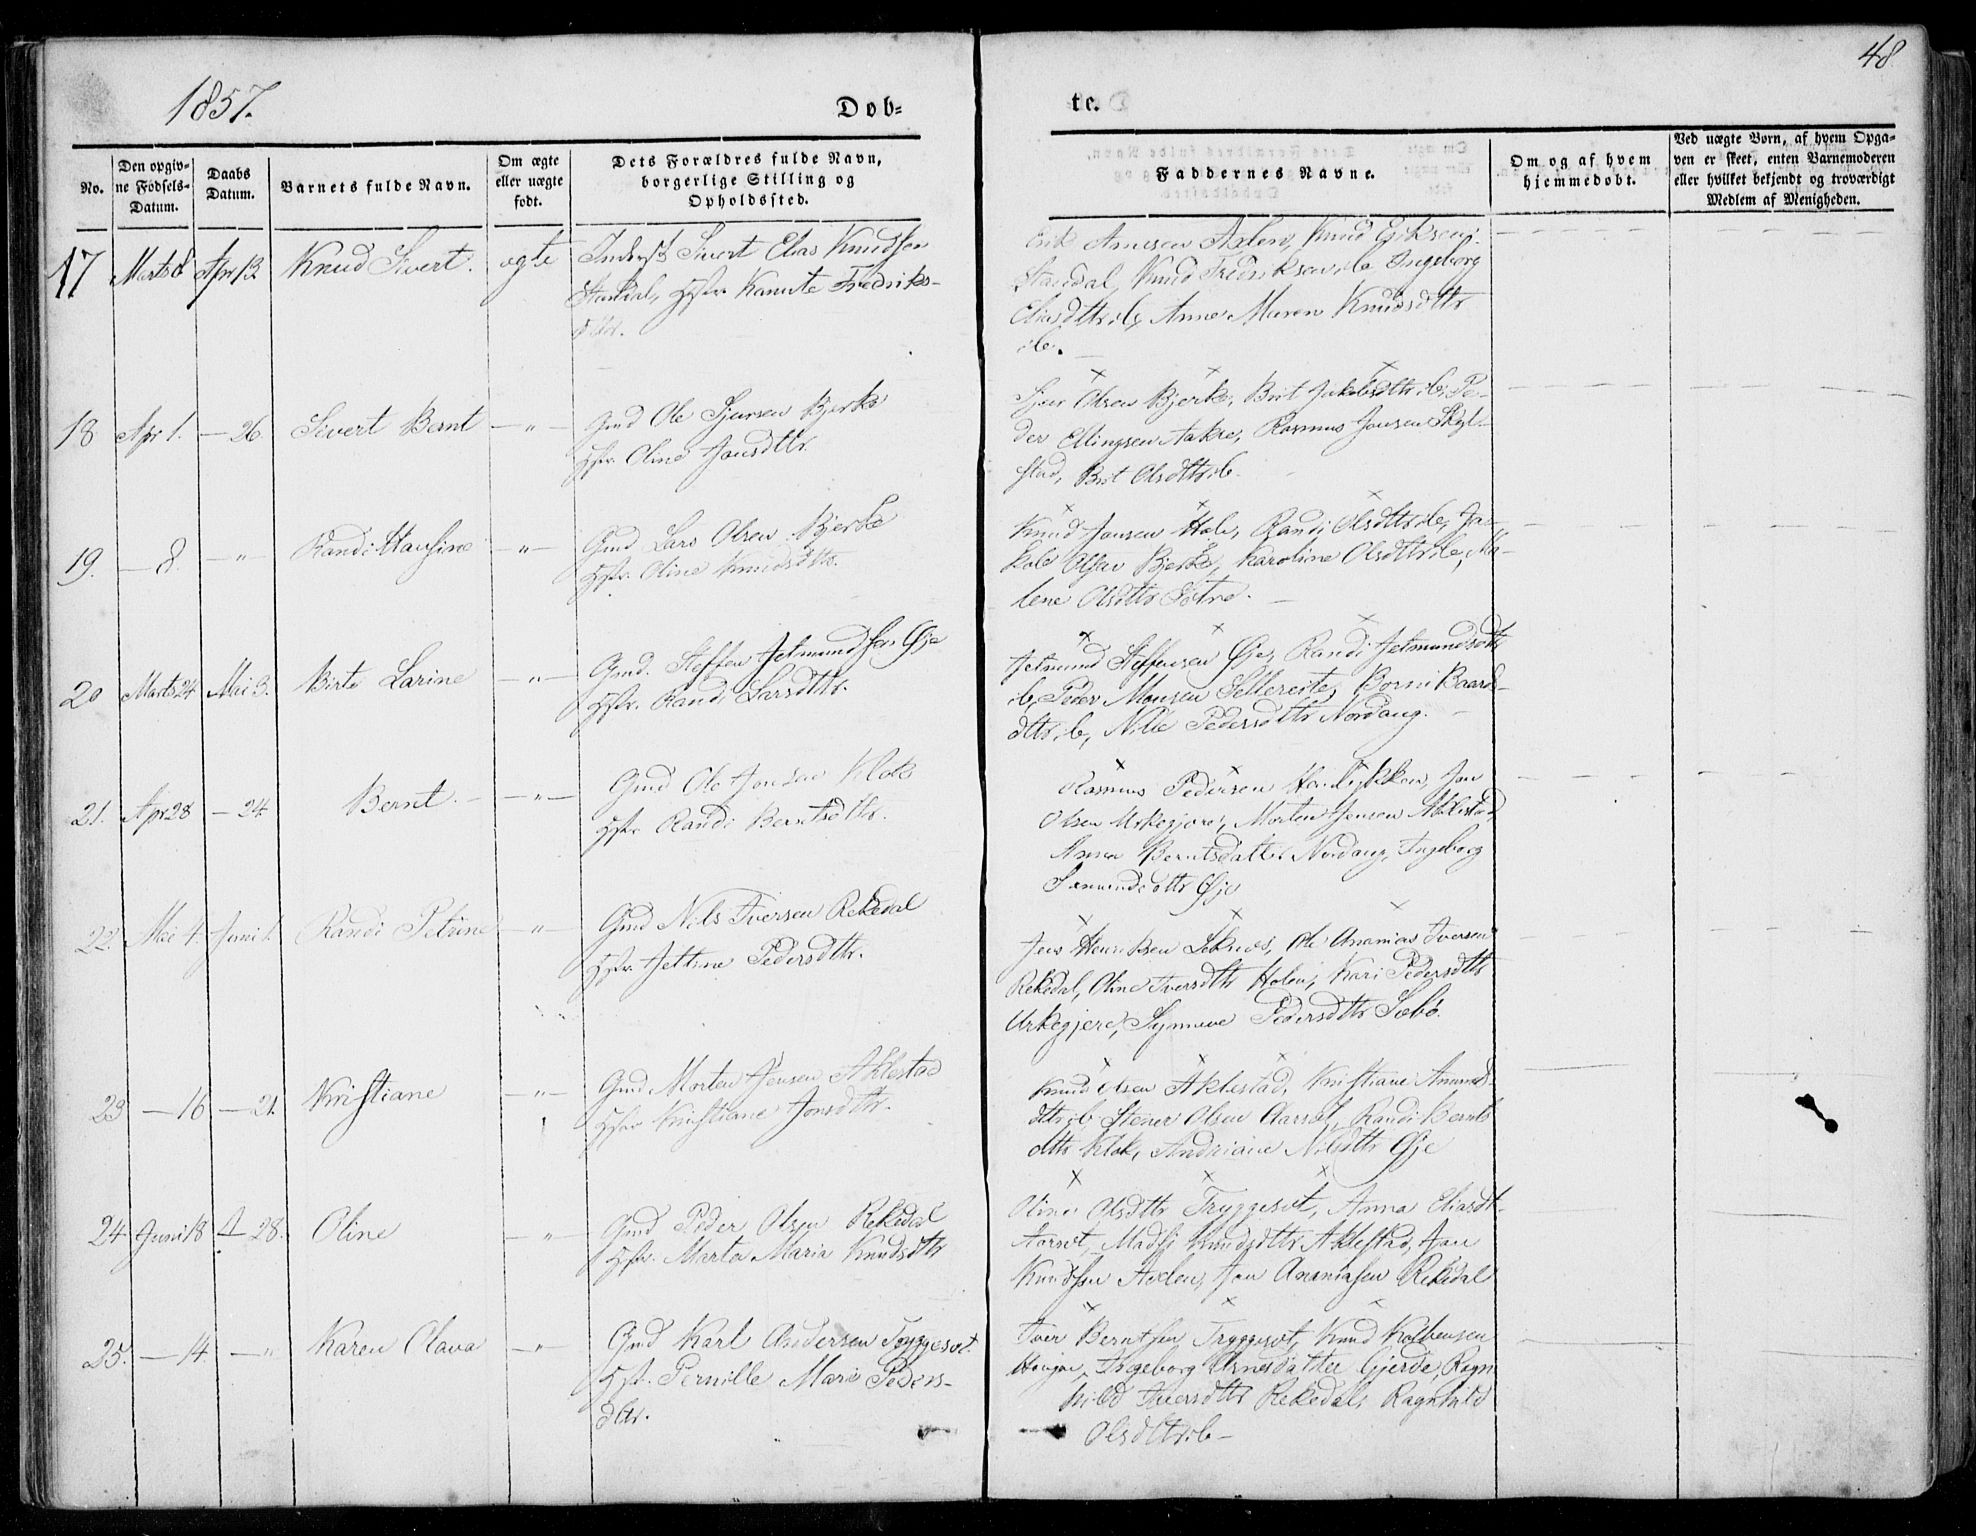 1857.
Dob=
te.
48
No.
Den opgiv-
ne Fødsels-
Datum.
Daabs
Datum.
Barnets fulde Navn.
Om ægte
eller uægte
født.
Dets Forældres fulde Navn,
borgerlige Stilling og
Opholdssted.
Faddernes Navne.
Om og af hvem
hjemmedøbt.
Ved uægte Børn, af hvem Opga-
ven er skeet, enten Barnemoderen
eller hvilket bekjendt og troværdigt
Medlem af Menigheden.
17 Marts 8 Apr 13 Knud Sivert. ægte
Sivert Elias Knudsen
Standal, Hstr Kanute Fredriks-
dtr.
Erik Arnesen Axlen, Knud Eriksen
Standal, Knud Fredriksen ib Ingeborg
Eliasdttr ib, Anne Maren Knudsdttr
ib.
18 Apr 1. — 26. Sivert Bernt — " —
Gmd Ole Sjursen Bjerke
Hstr. Oline Jonsdttr.
Sjur Olsen Bjerke, Brit Jakobsdttr ib, Pe-
der Ellingsen Aakre, Rasmus Jonsen Skyl-
stad, Brit Olsdttr ib.
19. — 8. — " Randi Hansine — " —
Gmd Lars Olsen Bjerke
Hstr. Oline Knudsdttr.
Knud Jonsen Hole, Randi Olsdttr ib, Ja-
kob Olsen Bjerke, Karoline Olsdttr ib, Ma-
lene Olsdttr Sætre.
20 Marts 24 Mai 3. Birte Larine — " —
Gmd. Steffen Jetmundsen Øje
Hstr. Randi Larsdttr.
Jetmund Steffensen Øje, Randi Jetmundsdttr
ib, Peder Monsen Sellereite, Borni Baards-
dttr ib, Nille Pedersdttr Nordang.
21. Apr 28 — 24 Bernt. — " —
Gmd Ole Jonsen Klok
Hstr Randi Berntsdttr.
Rasmus Pedersen Jon
Olsen Urkegjere, Morten Jensen Aklestad,
Anna Berntsdatter Nordang, Ingeborg
Øje
22. Mai 4. Juni 1. Randi Petrine — " —
Gmd Nils Iversen Rekedal
Hstr. Jettine Pedersdttr.
Jens Henriksen Leknes, Ole Ananias Iversen
Rekedal, Oline Iversdttr Holen, Kari Pedersdttr
Urkegjere, Synneve Pedersdttr Sæbö.
23 — 16 — 21. Kristiane — " —
Gmd Morten Jensen Aklestad
Hstr Kristiane Jonsdttr.
Knud Olsen Aklestad, Kristiane
dttr ib Stener Olsen Aarsæt, Randi Bernts
dttr Klok, Andriane Nilsdttr Øje
24 Juni 18 — 28. Oline — " —
Gmd Peder Olsen Rekedal
Hstr. Marta Maria Knudsdttr
Oline Olsdttr Tryggesæt, Anna Eliasdt-
Aarsæt, Knudsdttr Aklestad, Jon
Knudsen Axlen, Jon Ananiasen Rekedal
25. — 14 — " Karen Olava — " —
Gmd Karl Andersen Tryggesæt
Hstr. Pernille Marie Peders-
dttr.
Iver Berntsen Tryggesæt, Knud Kolbensen
Ingeborg Arnesdatter Gjerde, Ragn-
hild Iversdttr Rekedal, Ragnhild
Olsdttr ib —